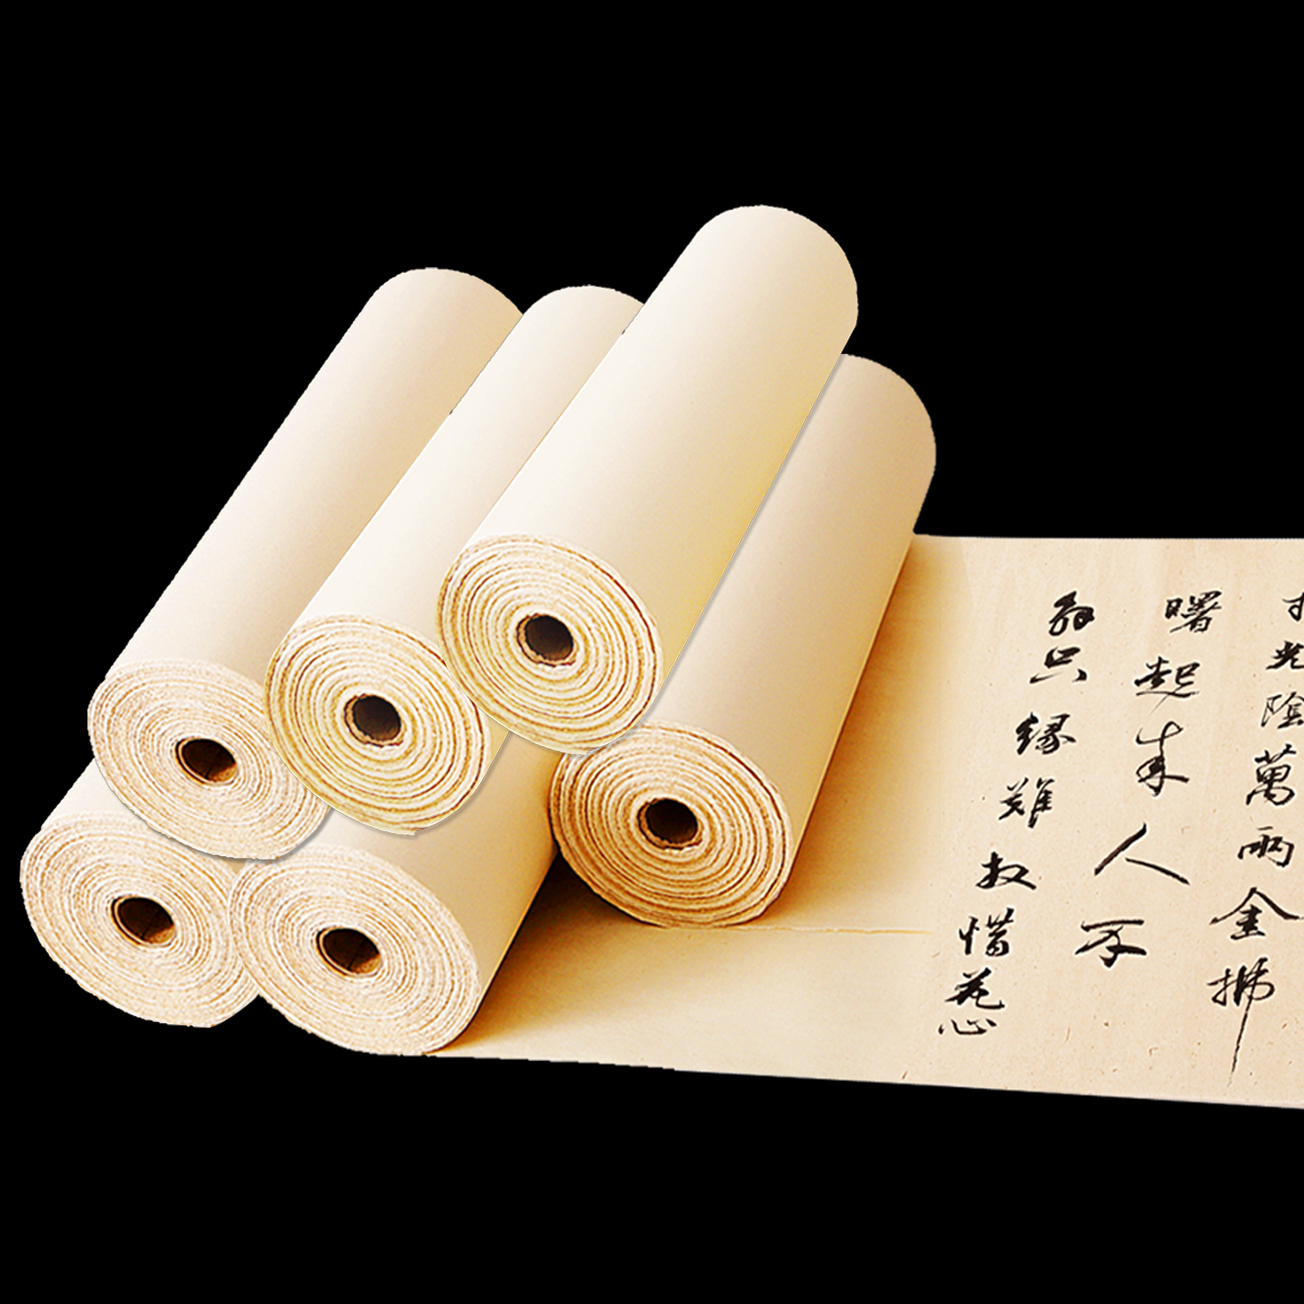 寸光陰萬兩金拂
曙起来人不
解只緣難放惜花心